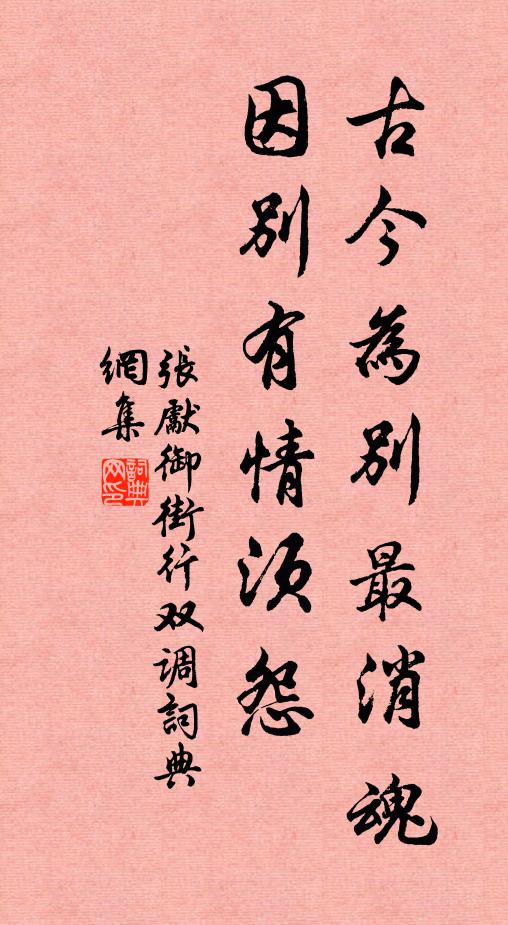 古今為別最消魂
因別有情须怨
張獻御街行双调詞典
網集
詞典网印